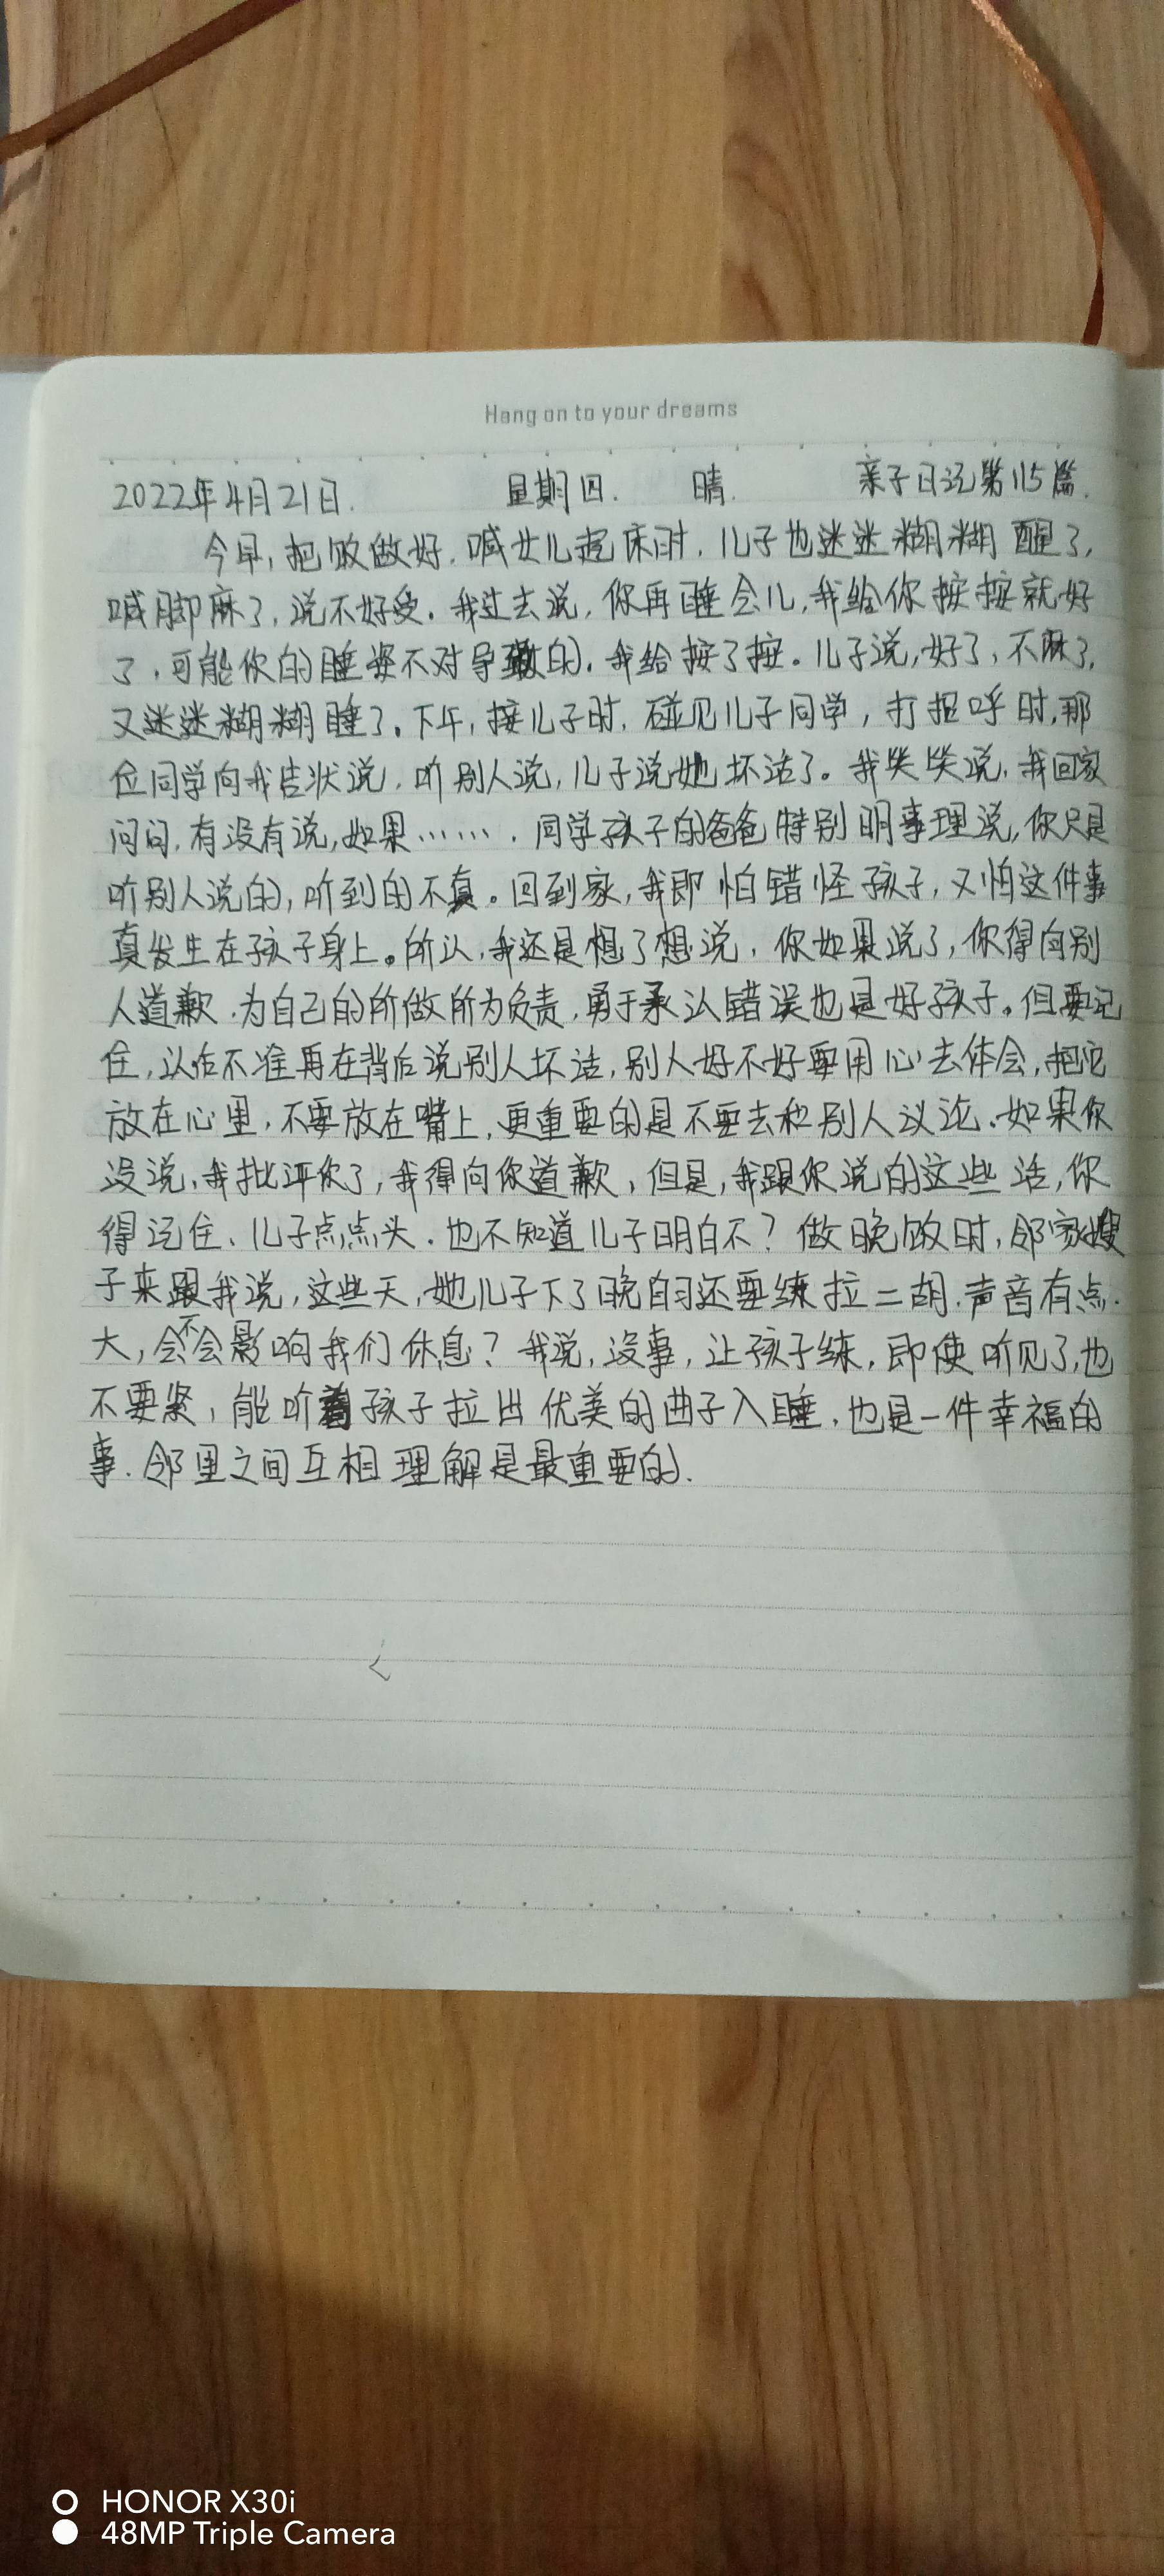 Hang on to your dreams
2022年4月21日. 星期四. 晴. 亲子日记第115篇.
今早,把饭做好.喊女儿起床时,儿子也迷迷糊糊醒了,
喊脚麻了,说不好受.我过去说,你再睡会儿,我给你按按就好
了,可能你的睡姿不对导致的.我给按了按。儿子说,好了,不麻了,
又迷迷糊糊睡了.下午,接儿子时,碰见儿子同学,打招呼时,那
位同学向我告状说,听别人说,儿子说她坏话了。我笑笑说,我回家
问问,有没有说,如果…….同学孩子的爸爸特别明事理说,你只是
听别人说的,听到的不真。回到家,我即怕错怪孩子,又怕这件事
真发生在孩子身上。所以,我还是想了想说,你如果说了,你得向别
人道歉.为自己的所做所为负责,勇于承认错误也是好孩子。但要记
住,以后不准再在背后说别人坏话,别人好不好要用心去体会,把它
放在心里,不要放在嘴上,更重要的是不要去和别人议论.如果你
没说,我批评你了,我得向你道歉,但是,我跟你说的这些话,你
得记住、儿子点点头.也不知道儿子明白不?做晚饭时,邻家嫂
子来跟我说,这些天,她儿子下了晚自习还要练拉二胡.声音有点
大,会不会影响我们休息?我说,没事,让孩子练,即使听见了,也
不要紧,能听着孩子拉出优美的曲子入睡,也是一件幸福的
事.邻里之间互相理解是最重要的.
HONOR X30i
48MP Triple Camera